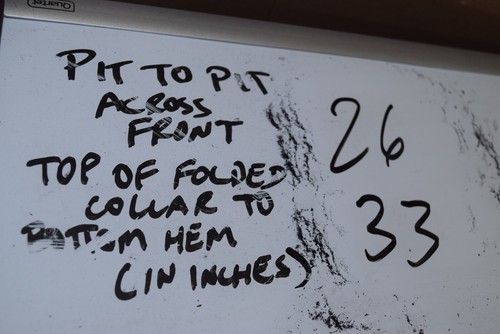 Quartet
PIT TO PIT
ACROSS
FRONT
26
TOP OF FOLDED
COLLAR TO
BOTTOM HEM
(IN INCHES)
33